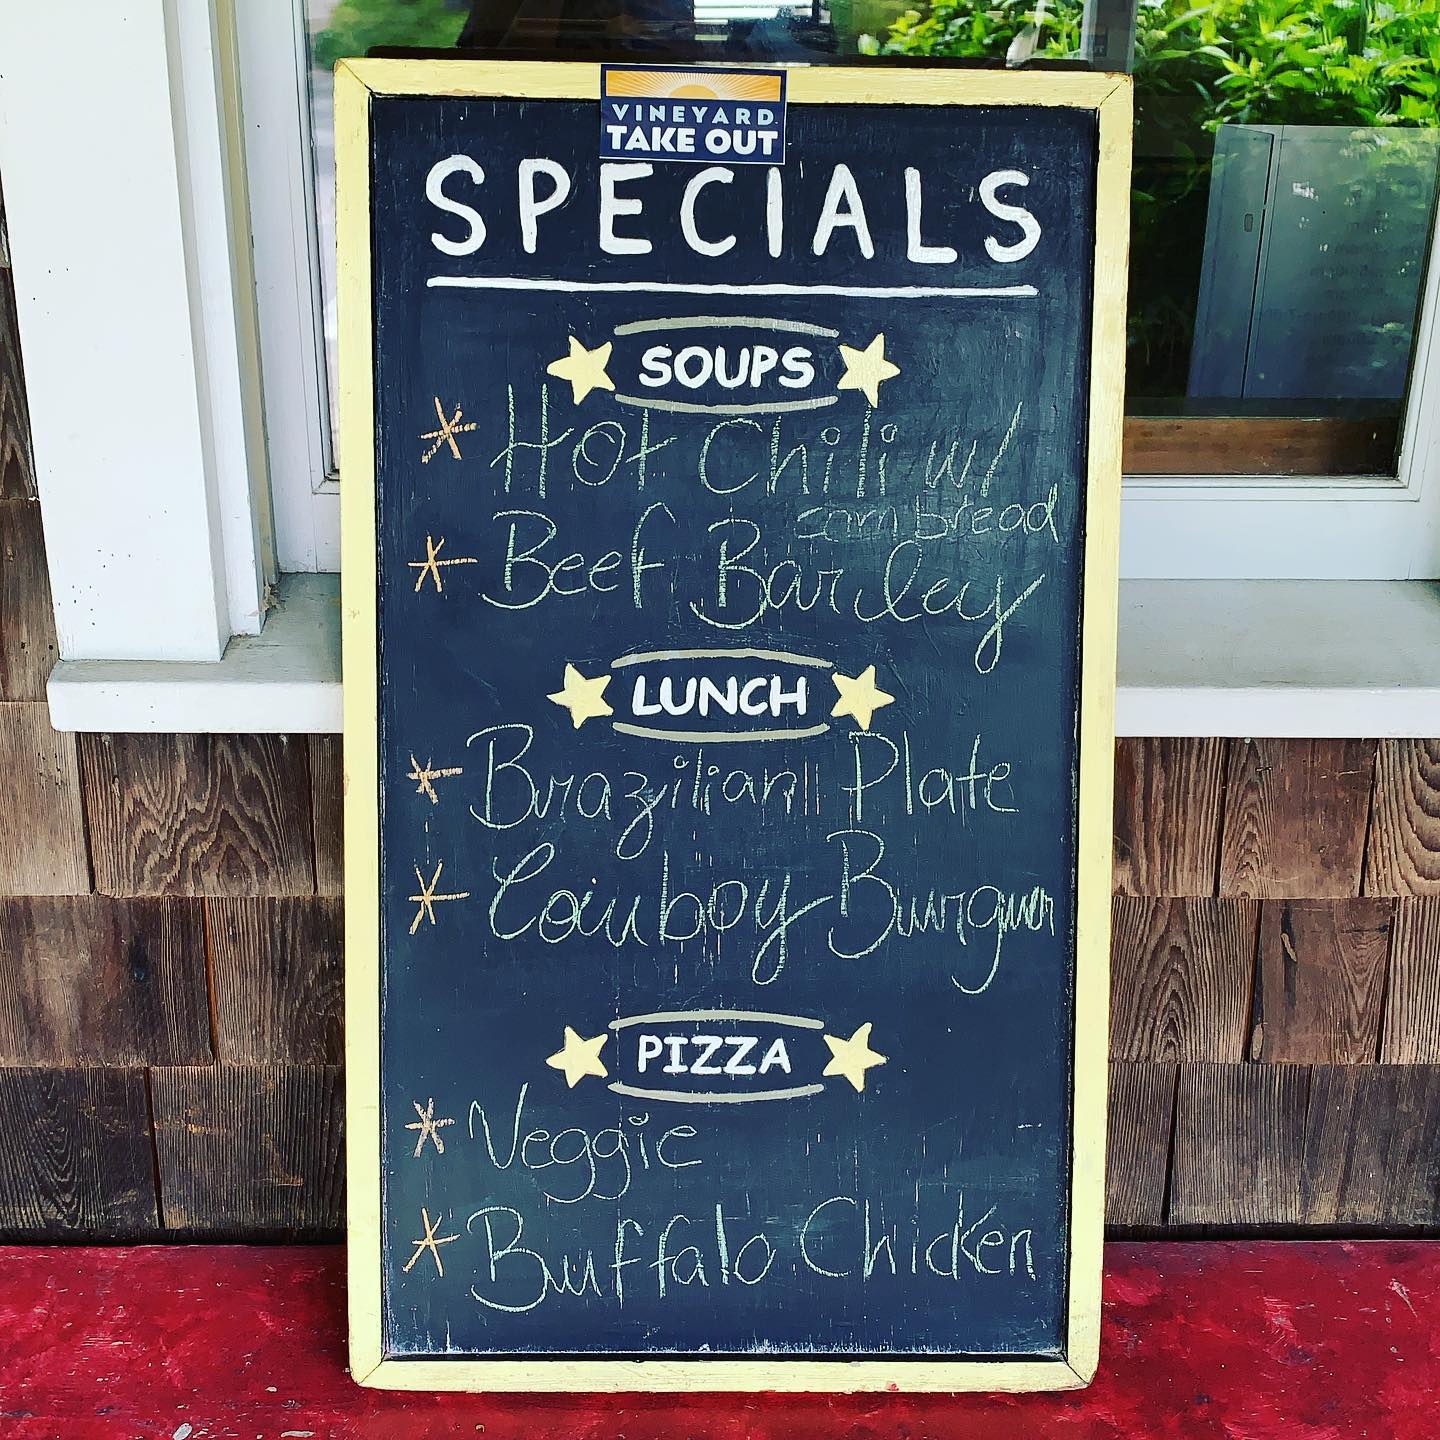 VINEYARD
TAKE OUT
SPECIALS
SOUPS
* Hot Chili w/
corn bread
* Beef Barley
LUNCH
* Brazilian Plate
* Cowboy Burguer
PIZZA
* Veggie
* Buffalo Chicken